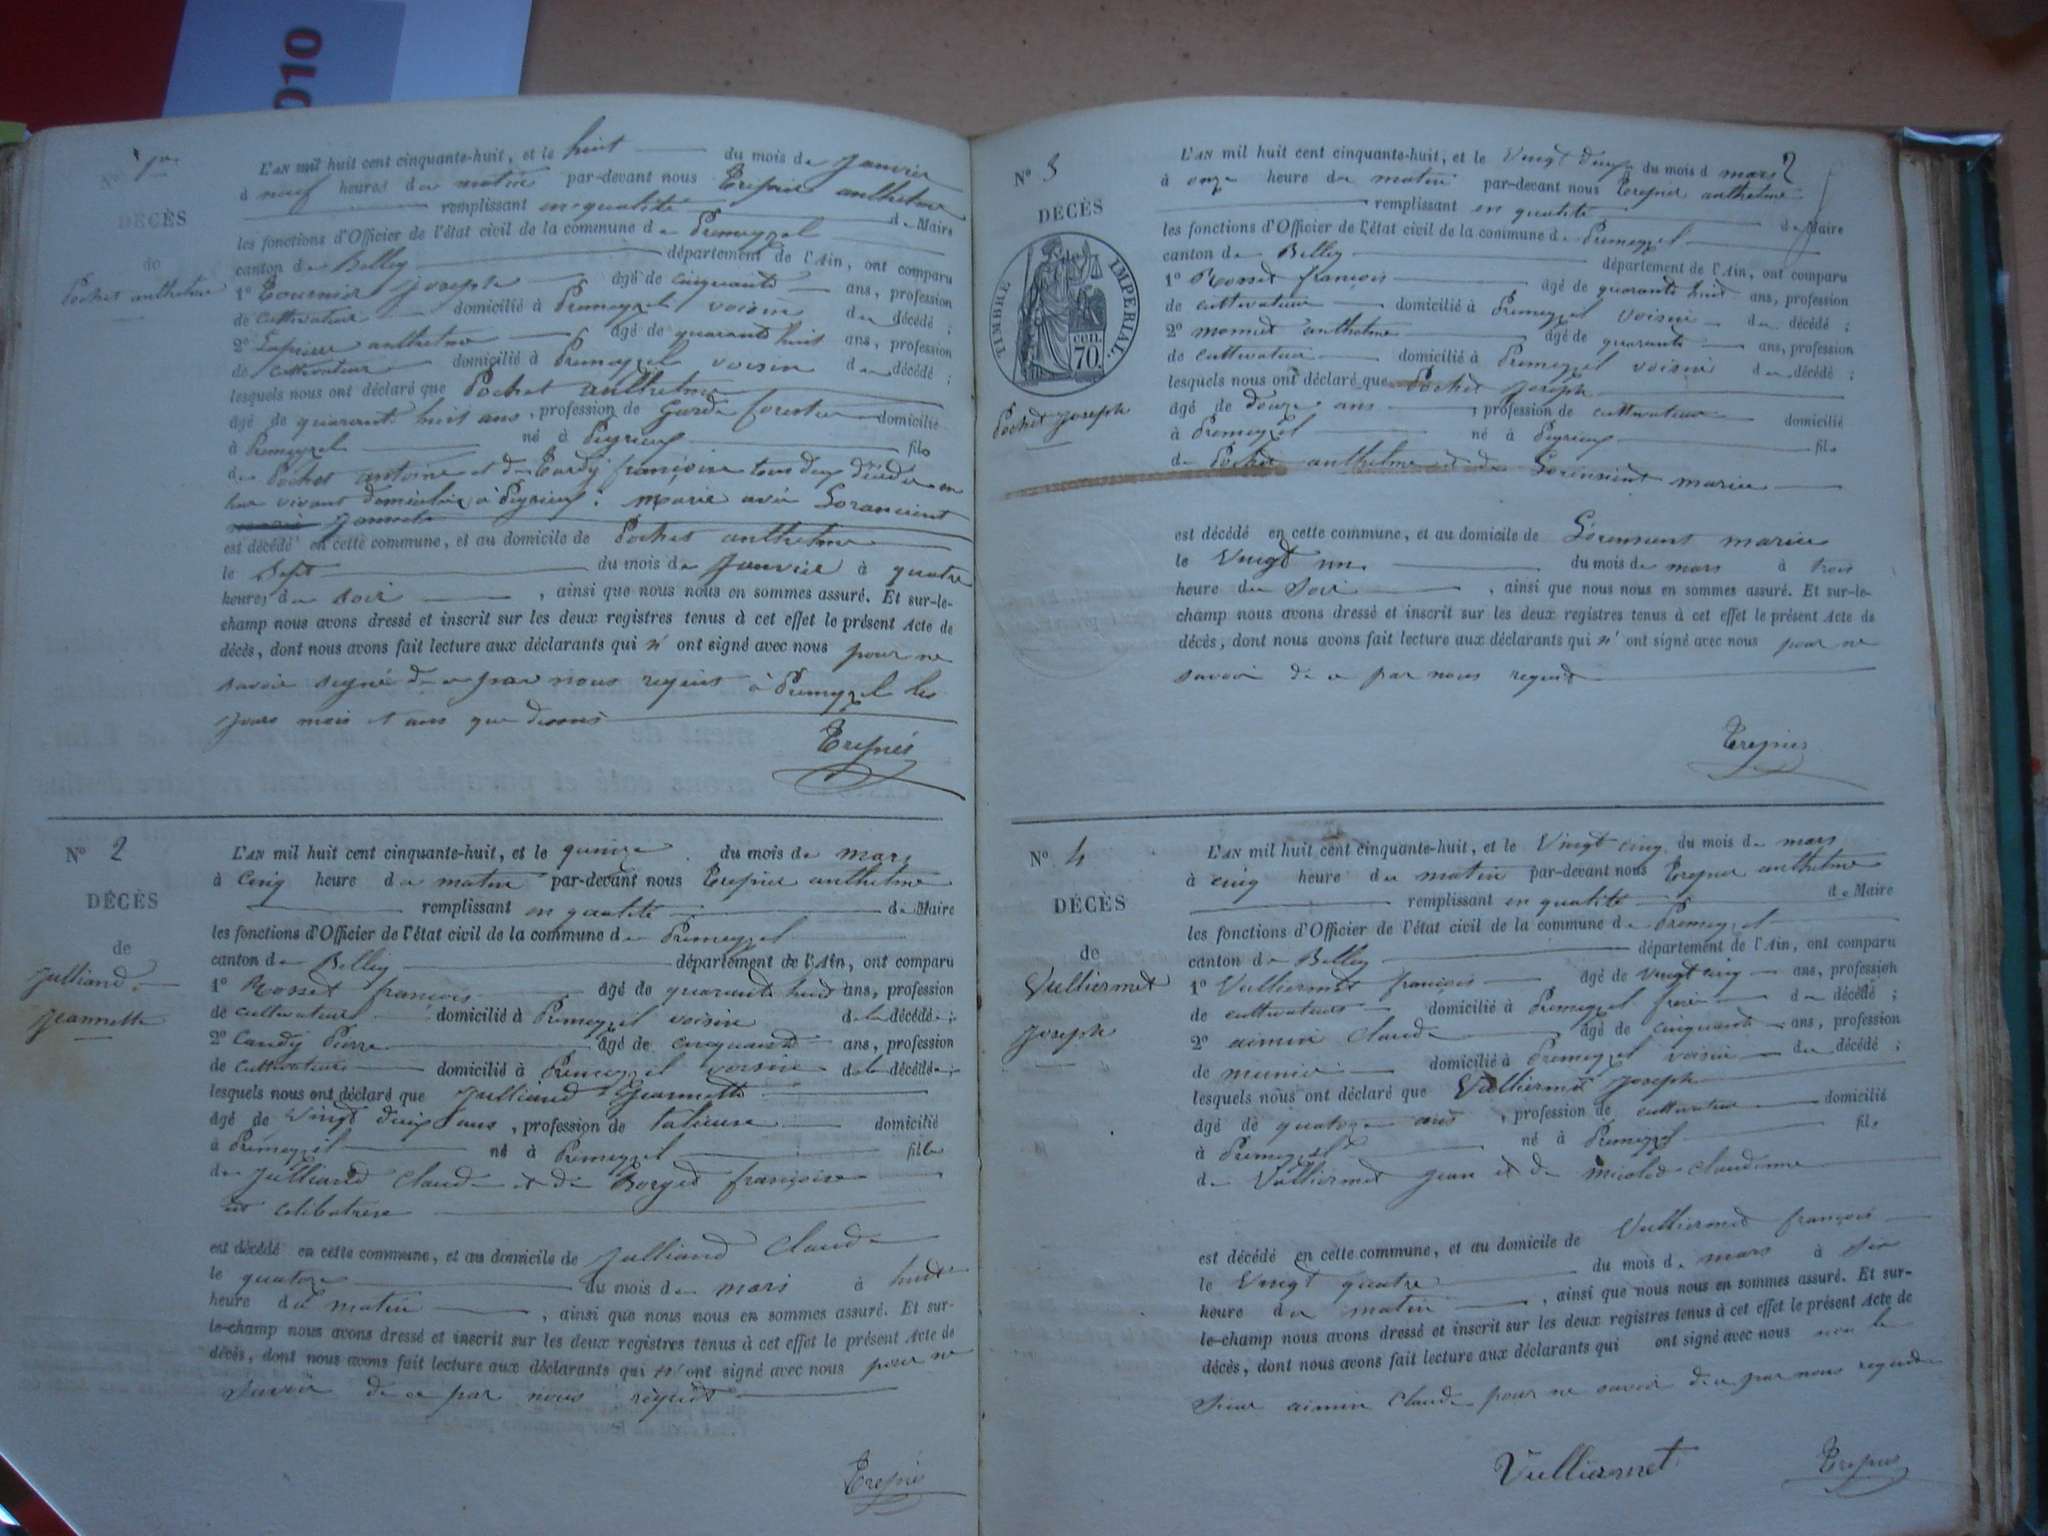 010
N° 1er
L'AN mil huit cent cinquante-huit, et le huit du mois de Janvier
à neuf heures du matin par-devant nous Trepier anthelme
remplissant en qualité de Maire
DÉCÈS
les fonctions d'Officier de l'état civil de la commune de Premeyzel
de
canton de Belley département de l'Ain, ont comparu
Pochet anthelme
1° Tournier Joseph âgé de cinquante ans, profession
de cultivateur domicilié à Premeyzel voisin du décédé ;
2° Lapierre anthelme âgé de quarante huit ans, profession
de cultivateur domicilié à Premeyzel voisin du décédé ;
lesquels nous ont déclaré que Pochet anthelme
âgé de quarante huit ans, profession de Garde forestier domicilié
à Premeyzel né à Peyrieux fils
de Pochet antoine et de Tardy françoise tous deux décédés en
leur vivant domiciliés à Peyrieux ; marié avec
est décédé en cette commune, et au domicile de Pochet anthelme
le Sept du mois de Janvier à quatre
heures du soir, ainsi que nous nous en sommes assuré. Et sur-le-
champ nous avons dressé et inscrit sur les deux registres tenus à cet effet le présent Acte de
décès, dont nous avons fait lecture aux déclarants qui n' ont signé avec nous pour ne
savoir signé de ce par nous requis à Premeyzel les
jours mois et ans que dessus
Trepier
N° 2
L'AN mil huit cent cinquante-huit, et le quinze du mois de mars
à cinq heure du matin par-devant nous Trepier anthelme
DÉCÈS
remplissant en qualité de Maire
les fonctions d'Officier de l'état civil de la commune de Premeyzel
de
canton de Belley département de l'Ain, ont comparu
Julliand
Jeannette
1° Rosset françois âgé de quarante huit ans, profession
de cultivateur domicilié à Premeyzel voisin de la décédée ;
2° Candy Pierre âgé de cinquante ans, profession
de cultivateur domicilié à Premeyzel voisin de la décédée ;
lesquels nous ont déclaré que Julliand Jeannette
âgé de vingt deux ans, profession de domicilié
à Premeyzel né à Premeyzel fille
de Julliand Claude et de Borget françoise
est celibataire
est décédé en cette commune, et au domicile de Julliand Claude
le quatorze du mois de mars à huit
heure du matin, ainsi que nous nous en sommes assuré. Et sur-
le-champ nous avons dressé et inscrit sur les deux registres tenus à cet effet le présent Acte de
décès, dont nous avons fait lecture aux déclarants qui n' ont signé avec nous pour ne
savoir de ce par nous requis
Trepier
2
N° 3
L'AN mil huit cent cinquante-huit, et le Vingt deux du mois d mars
à onze heure du matin par-devant nous Trepier anthelme
DÉCÈS
remplissant en qualité de Maire
TIMBRE IMPERIAL.
70 cen.
les fonctions d'Officier de l'état civil de la commune de Premeyzel
canton de Belley département de l'Ain, ont comparu
1° Rosset françois âgé de quarante huit ans, profession
de cultivateur domicilié à Premeyzel voisin du décédé ;
2° monnet anthelme âgé de quarante ans, profession
de cultivateur domicilié à Premeyzel voisin du décédé ;
lesquels nous ont déclaré que Pochet Joseph
Pochet Joseph
âgé de douze ans, profession de cultivateur domicilié
à Premeyzel né à Peyrieux fils
de Pochet anthelme et de marie
est décédé en cette commune, et au domicile de marie
le Vingt un du mois de mars à trois
heure du Soir, ainsi que nous nous en sommes assuré. Et sur-le-
champ nous avons dressé et inscrit sur les deux registres tenus à cet effet le présent Acte de
décès, dont nous avons fait lecture aux déclarants qui n' ont signé avec nous pour ne
savoir de ce par nous requis
Trepier
N° 4
L'AN mil huit cent cinquante-huit, et le Vingt cinq du mois de mars
à cinq heure du matin par-devant nous Trepier anthelme
DÉCÈS
remplissant en qualité de Maire
les fonctions d'Officier de l'état civil de la commune de Premeyzel
de
canton de Belley département de l'Ain, ont comparu
Vulliermet
Joseph
1° Vulliermet françois âgé de vingt cinq ans, profession
de cultivateur domicilié à Premeyzel frère du décédé ;
2° aimin Claude âgé de cinquante ans, profession
de meunier domicilié à Premeyzel voisin du décédé ;
lesquels nous ont déclaré que Vulliermet Joseph
âgé de quatorze ans, profession de cultivateur domicilié
à Premeyzel né à Premeyzel fils
de Vulliermet Jean et de Claudine
est décédé en cette commune, et au domicile de Vulliermet françois
le Vingt quatre du mois de mars à six
heure du matin, ainsi que nous nous en sommes assuré. Et sur-
le-champ nous avons dressé et inscrit sur les deux registres tenus à cet effet le présent Acte de
décès, dont nous avons fait lecture aux déclarants qui ont signé avec nous non le
Sieur aimin Claude pour ne savoir de ce par nous requis
Vulliermet
Trepier